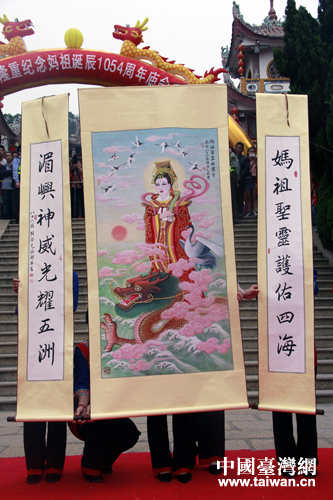 隆重纪念妈祖诞辰1054周年庙会
媽祖聖靈護佑四海
湄嶼神威光耀五洲
中國臺灣網
www.taiwan.cn